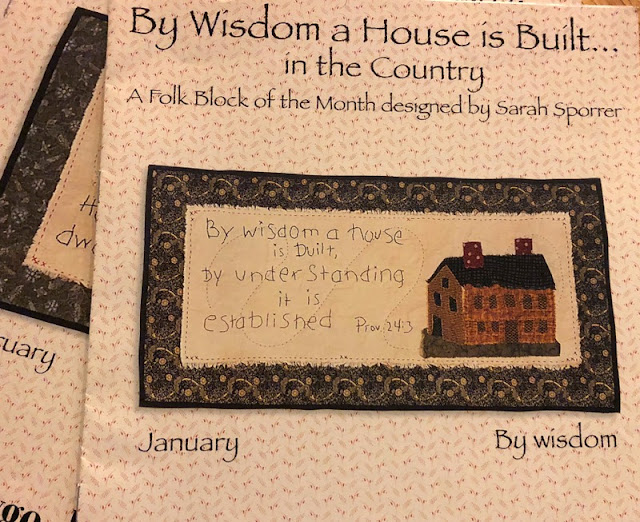 By Wisdom a House is Built...
in the Country
A Folk Block of the Month designed by Sarah Sporrer
By wisdom a house
is built,
by understanding
it is
established Prov. 24:3
January
By wisdom
uary